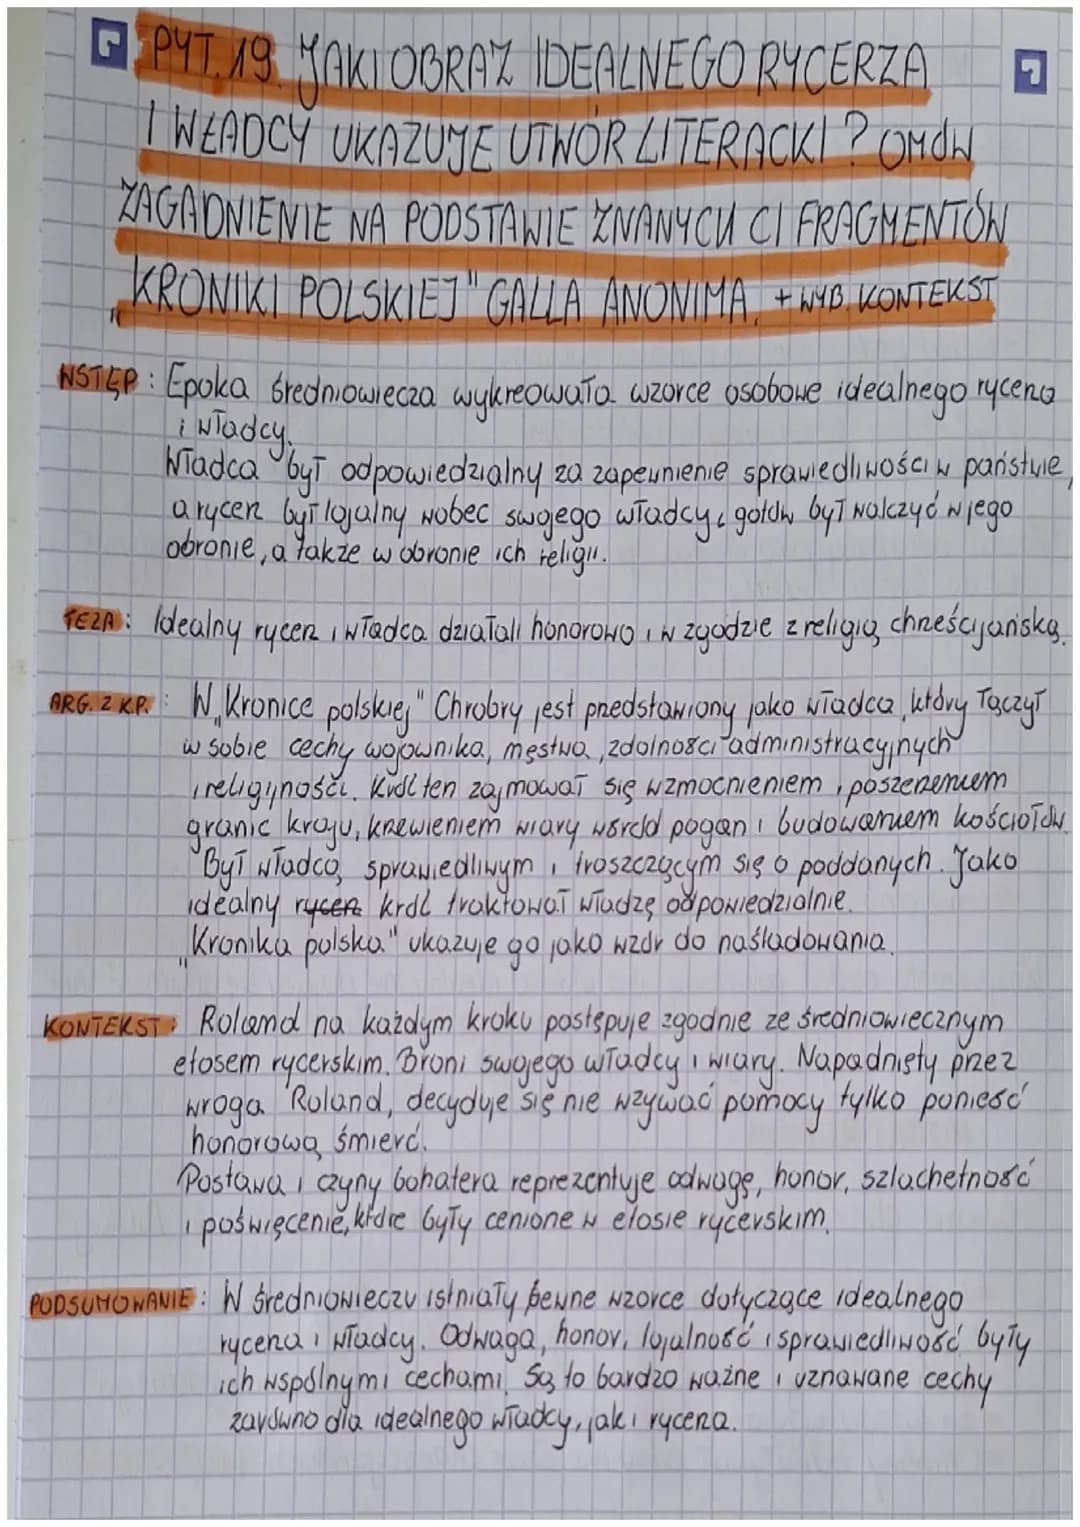 PYT. 19. JAKI OBRAZ IDEALNEGO RYCERZA
I WŁADCY UKAZUJE UTWÓR LITERACKI? OMÓW
ZAGADNIENIE NA PODSTAWIE ZNANYCH CI FRAGMENTÓW
„KRONIKI POLSKIEJ" GALLA ANONIMA. + WYB. KONTEKST
WSTĘP: Epoka średniowiecza wykreowała wzorce osobowe idealnego rycerza
i władcy.
Władca był odpowiedzialny za zapewnienie sprawiedliwości w państwie,
a rycerz był lojalny wobec swojego władcy i gotów był walczyć w jego
obronie, a także w obronie ich religii.
TEZA: Idealny rycerz i władca działali honorowo i w zgodzie z religią chrześcijańską.
ARG. Z K.P.: W „Kronice polskiej" Chrobry jest przedstawiony jako władca, który łączył
w sobie cechy wojownika, męstwa, zdolności administracyjnych
i religijności. Król ten zajmował się wzmocnieniem i poszerzeniem
granic kraju, krzewieniem wiary wśród pogan i budowaniem kościołów.
Był władcą sprawiedliwym i troszczącym się o poddanych. Jako
idealny rycerz król traktował władzę odpowiedzialnie.
„Kronika polska" ukazuje go jako wzór do naśladowania.
KONTEKST: Roland na każdym kroku postępuje zgodnie ze średniowiecznym
etosem rycerskim. Broni swojego władcy i wiary. Napadnięty przez
wroga Roland, decyduje się nie wzywać pomocy tylko ponieść
honorową śmierć.
Postawa i czyny bohatera reprezentuje odwagę, honor, szlachetność
i poświęcenie, które były cenione w etosie rycerskim.
PODSUMOWANIE: W średniowieczu istniały pewne wzorce dotyczące idealnego
rycerza i władcy. Odwaga, honor, lojalność i sprawiedliwość były
ich wspólnymi cechami. Są to bardzo ważne i uznawane cechy
zarówno dla idealnego władcy, jak i rycerza.